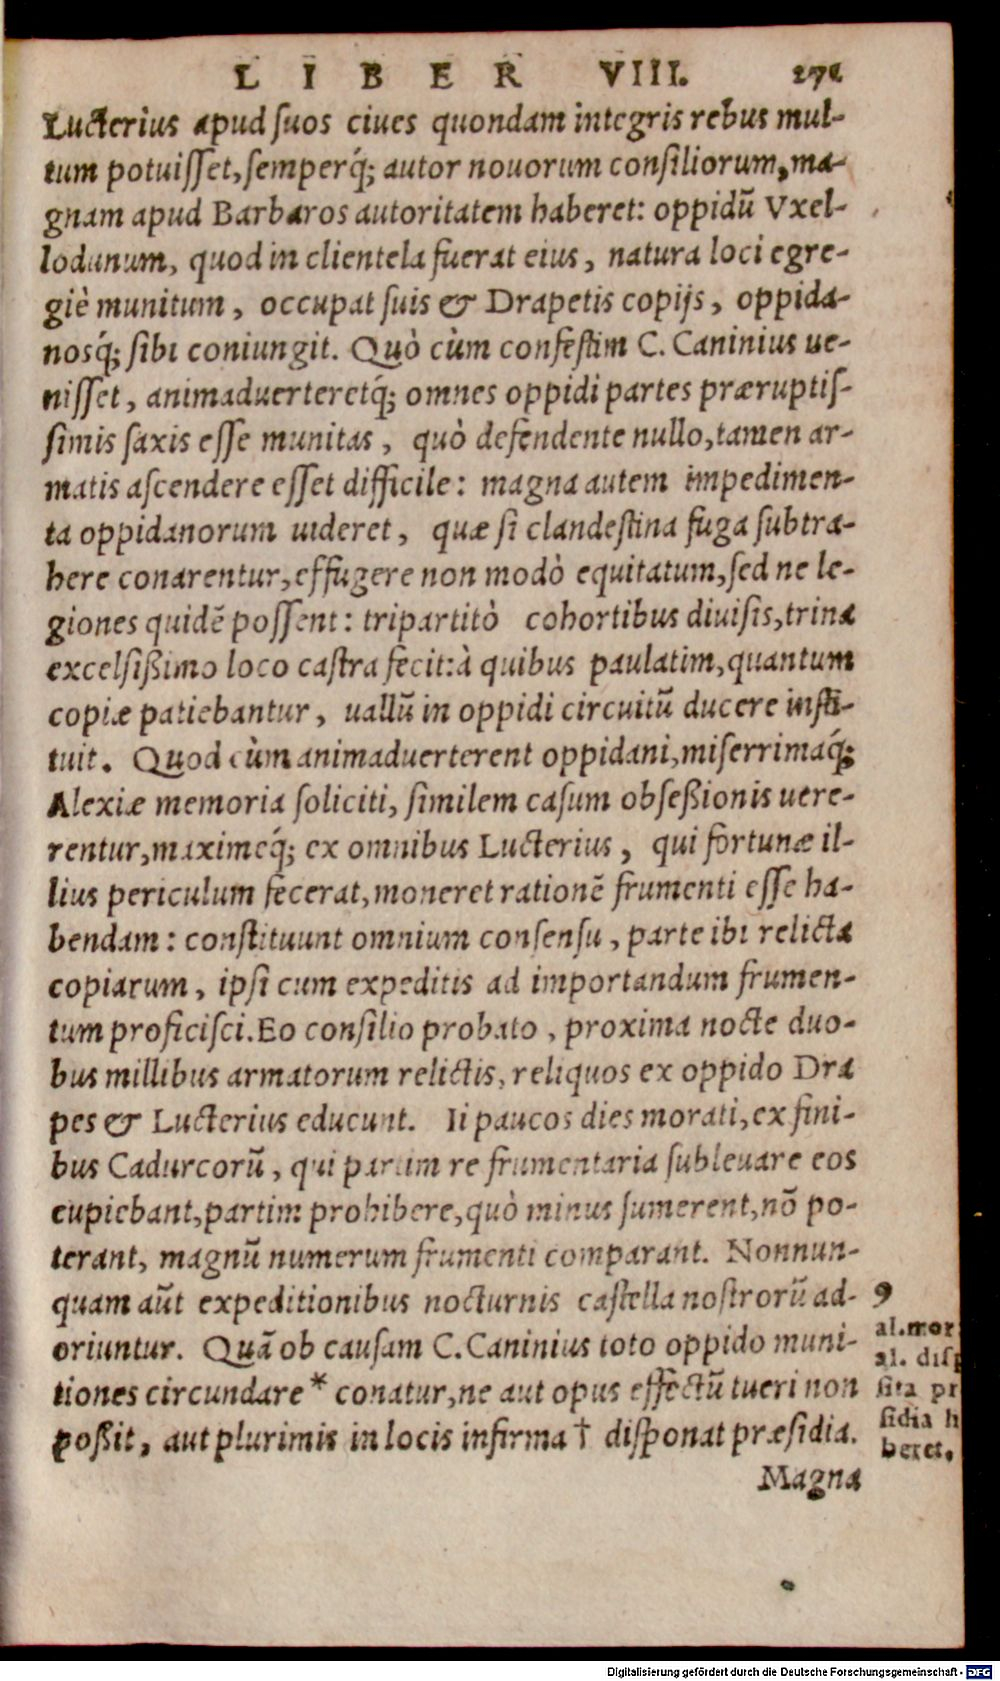 LIBER VIII. 271
Lucterius apud ſuos ciues quondam integris rebus mul-
tum potuiſſet, ſemperq́; autor nouorum conſiliorum, ma-
gnam apud Barbaros autoritatem haberet: oppidũ Vxel-
lodunum, quod in clientela fuerat eius, natura loci egre-
giè munitum, occupat ſuis & Drapetis copijs, oppida-
nosq́; ſibi coniungit. Quò cùm confeſtim C. Caninius ue-
niſſet, animaduerteretq́; omnes oppidi partes præruptiſ-
ſimis ſaxis eſſe munitas, quò defendente nullo, tamen ar-
matis aſcendere eſſet difficile: magna autem impedimen-
ta oppidanorum uideret, quæ ſi clandeſtina fuga ſubtra-
here conarentur, effugere non modò equitatum, ſed ne le-
giones quidẽ poſſent: tripartitò cohortibus diuiſis, trina
excelſißimo loco caſtra fecit: à quibus paulatim, quantum
copiæ patiebantur, uallũ in oppidi circuitũ ducere inſti-
tuit. Quod cùm animaduerterent oppidani, miſerrimaq́;
Alexiæ memoria ſoliciti, ſimilem caſum obſeßionis uere-
rentur, maximeq́; ex omnibus Lucterius, qui fortunæ il-
lius periculum fecerat, moneret rationẽ frumenti eſſe ha-
bendam: conſtituunt omnium conſenſu, parte ibi relicta
copiarum, ipſi cum expeditis ad importandum frumen-
tum proficiſci. Eo conſilio probato, proxima nocte duo-
bus millibus armatorum relictis, reliquos ex oppido Dra
pes & Lucterius educunt. Ii paucos dies morati, ex fini-
bus Cadurcorũ, qui partim re frumentaria ſubleuare eos
cupiebant, partim prohibere, quò minus ſumerent, nõ po-
terant, magnũ numerum frumenti comparant. Nonnun-
quam aũt expeditionibus nocturnis caſtella noſtrorũ ad-
oriuntur. Quã ob cauſam C. Caninius toto oppido muni-
tiones circundare * conatur, ne aut opus effectũ tueri non
poßit, aut plurimis in locis infirma † diſponat præſidia.
Magna
9
al. mor
al. diſp
ſita pr
ſidia h
beret.
Digitalisierung gefördert durch die Deutsche Forschungsgemeinschaft - DFG